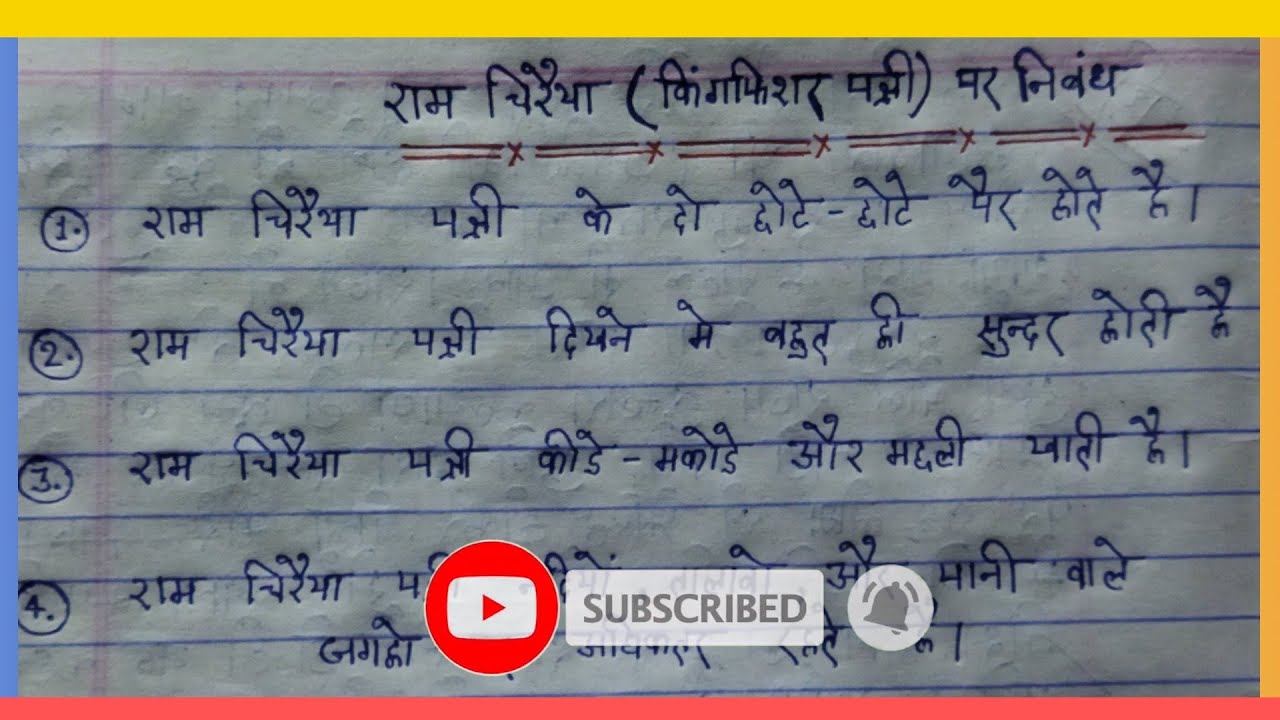 राम चिरैया (किंगफिशर पक्षी) पर निबंध
1. राम चिरैया पक्षी के दो छोटे-छोटे पैर होते है।
2. राम चिरैया पक्षी दिखने मे बहुत ही सुन्दर होती है
3. राम चिरैया पक्षी कीडे-मकोडे और मछली खाती है।
4. राम चिरैया और पानी वाले
SUBSCRIBED
जगहो अधिकतर रहते है।